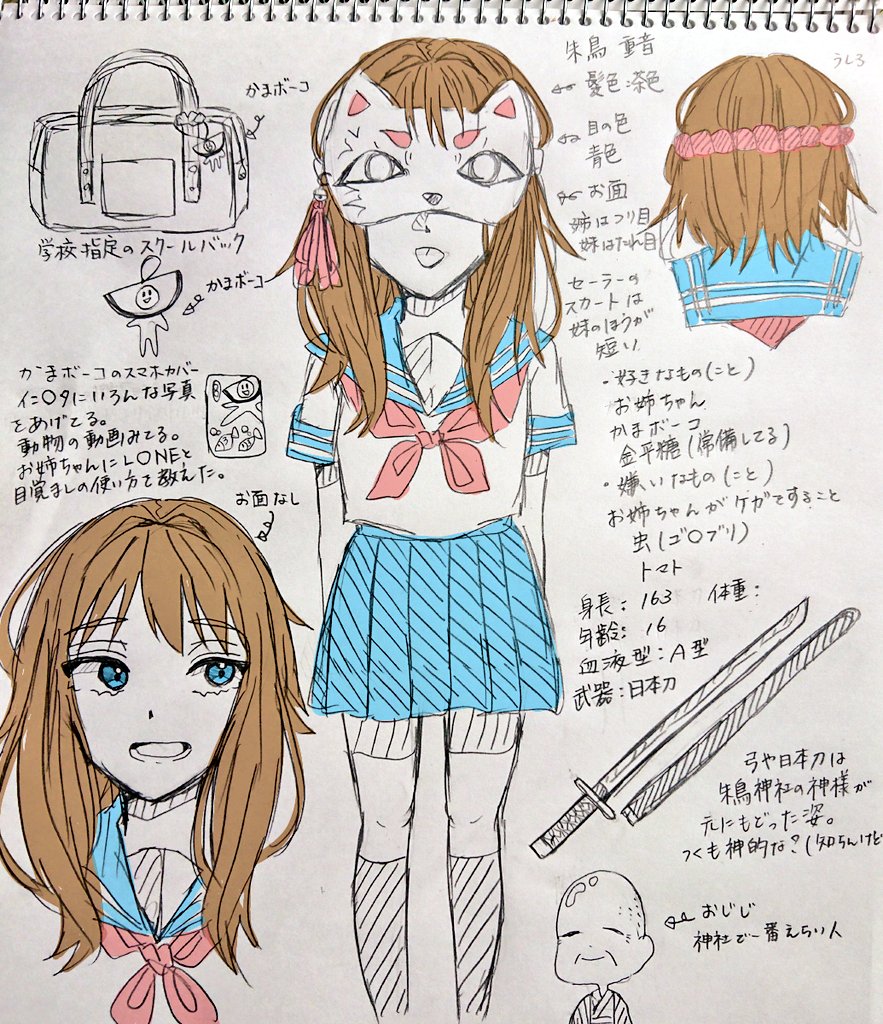 かまボーコ
学校指定のスクールバック
かまボーコ
かまボーコのスマホカバー
イ〇〇タにいろんな写真
をあげてる。
動物の動画みてる。
お姉ちゃんにLONEと
目覚ましの使い方を教えた。
お面なし
朱鳥 重音
髪色:茶色
目の色
青色
お面
姉はつり目
妹はたれ目
うしろ
セーラーの
スカートは
妹のほうが
短い
・好きなもの(こと)
お姉ちゃん
かまボーコ
金平糖(常備してる)
・嫌いなもの(こと)
お姉ちゃんがケガをすること
虫(ゴ〇ブリ)
トマト
身長: 163 体重:
年齢: 16
血液型:A型
武器:日本刀
弓や日本刀は
朱鳥神社の神様が
元にもどった姿。
つくも神的な?(知らんけど
おじじ
神社で一番えらい人